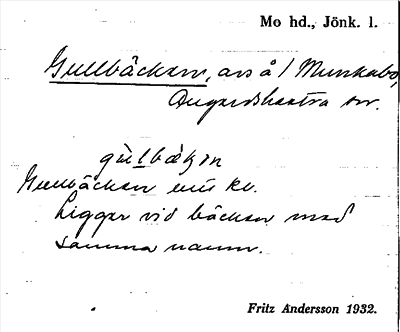 Mo hd., Jönk. l.
Gullbäcken, avs å / Munkabo,
Ångerdshestra sn.
Gullbäcken enl kt.
Ligger vid bäcken med
samma namn.
Fritz Andersson 1932.